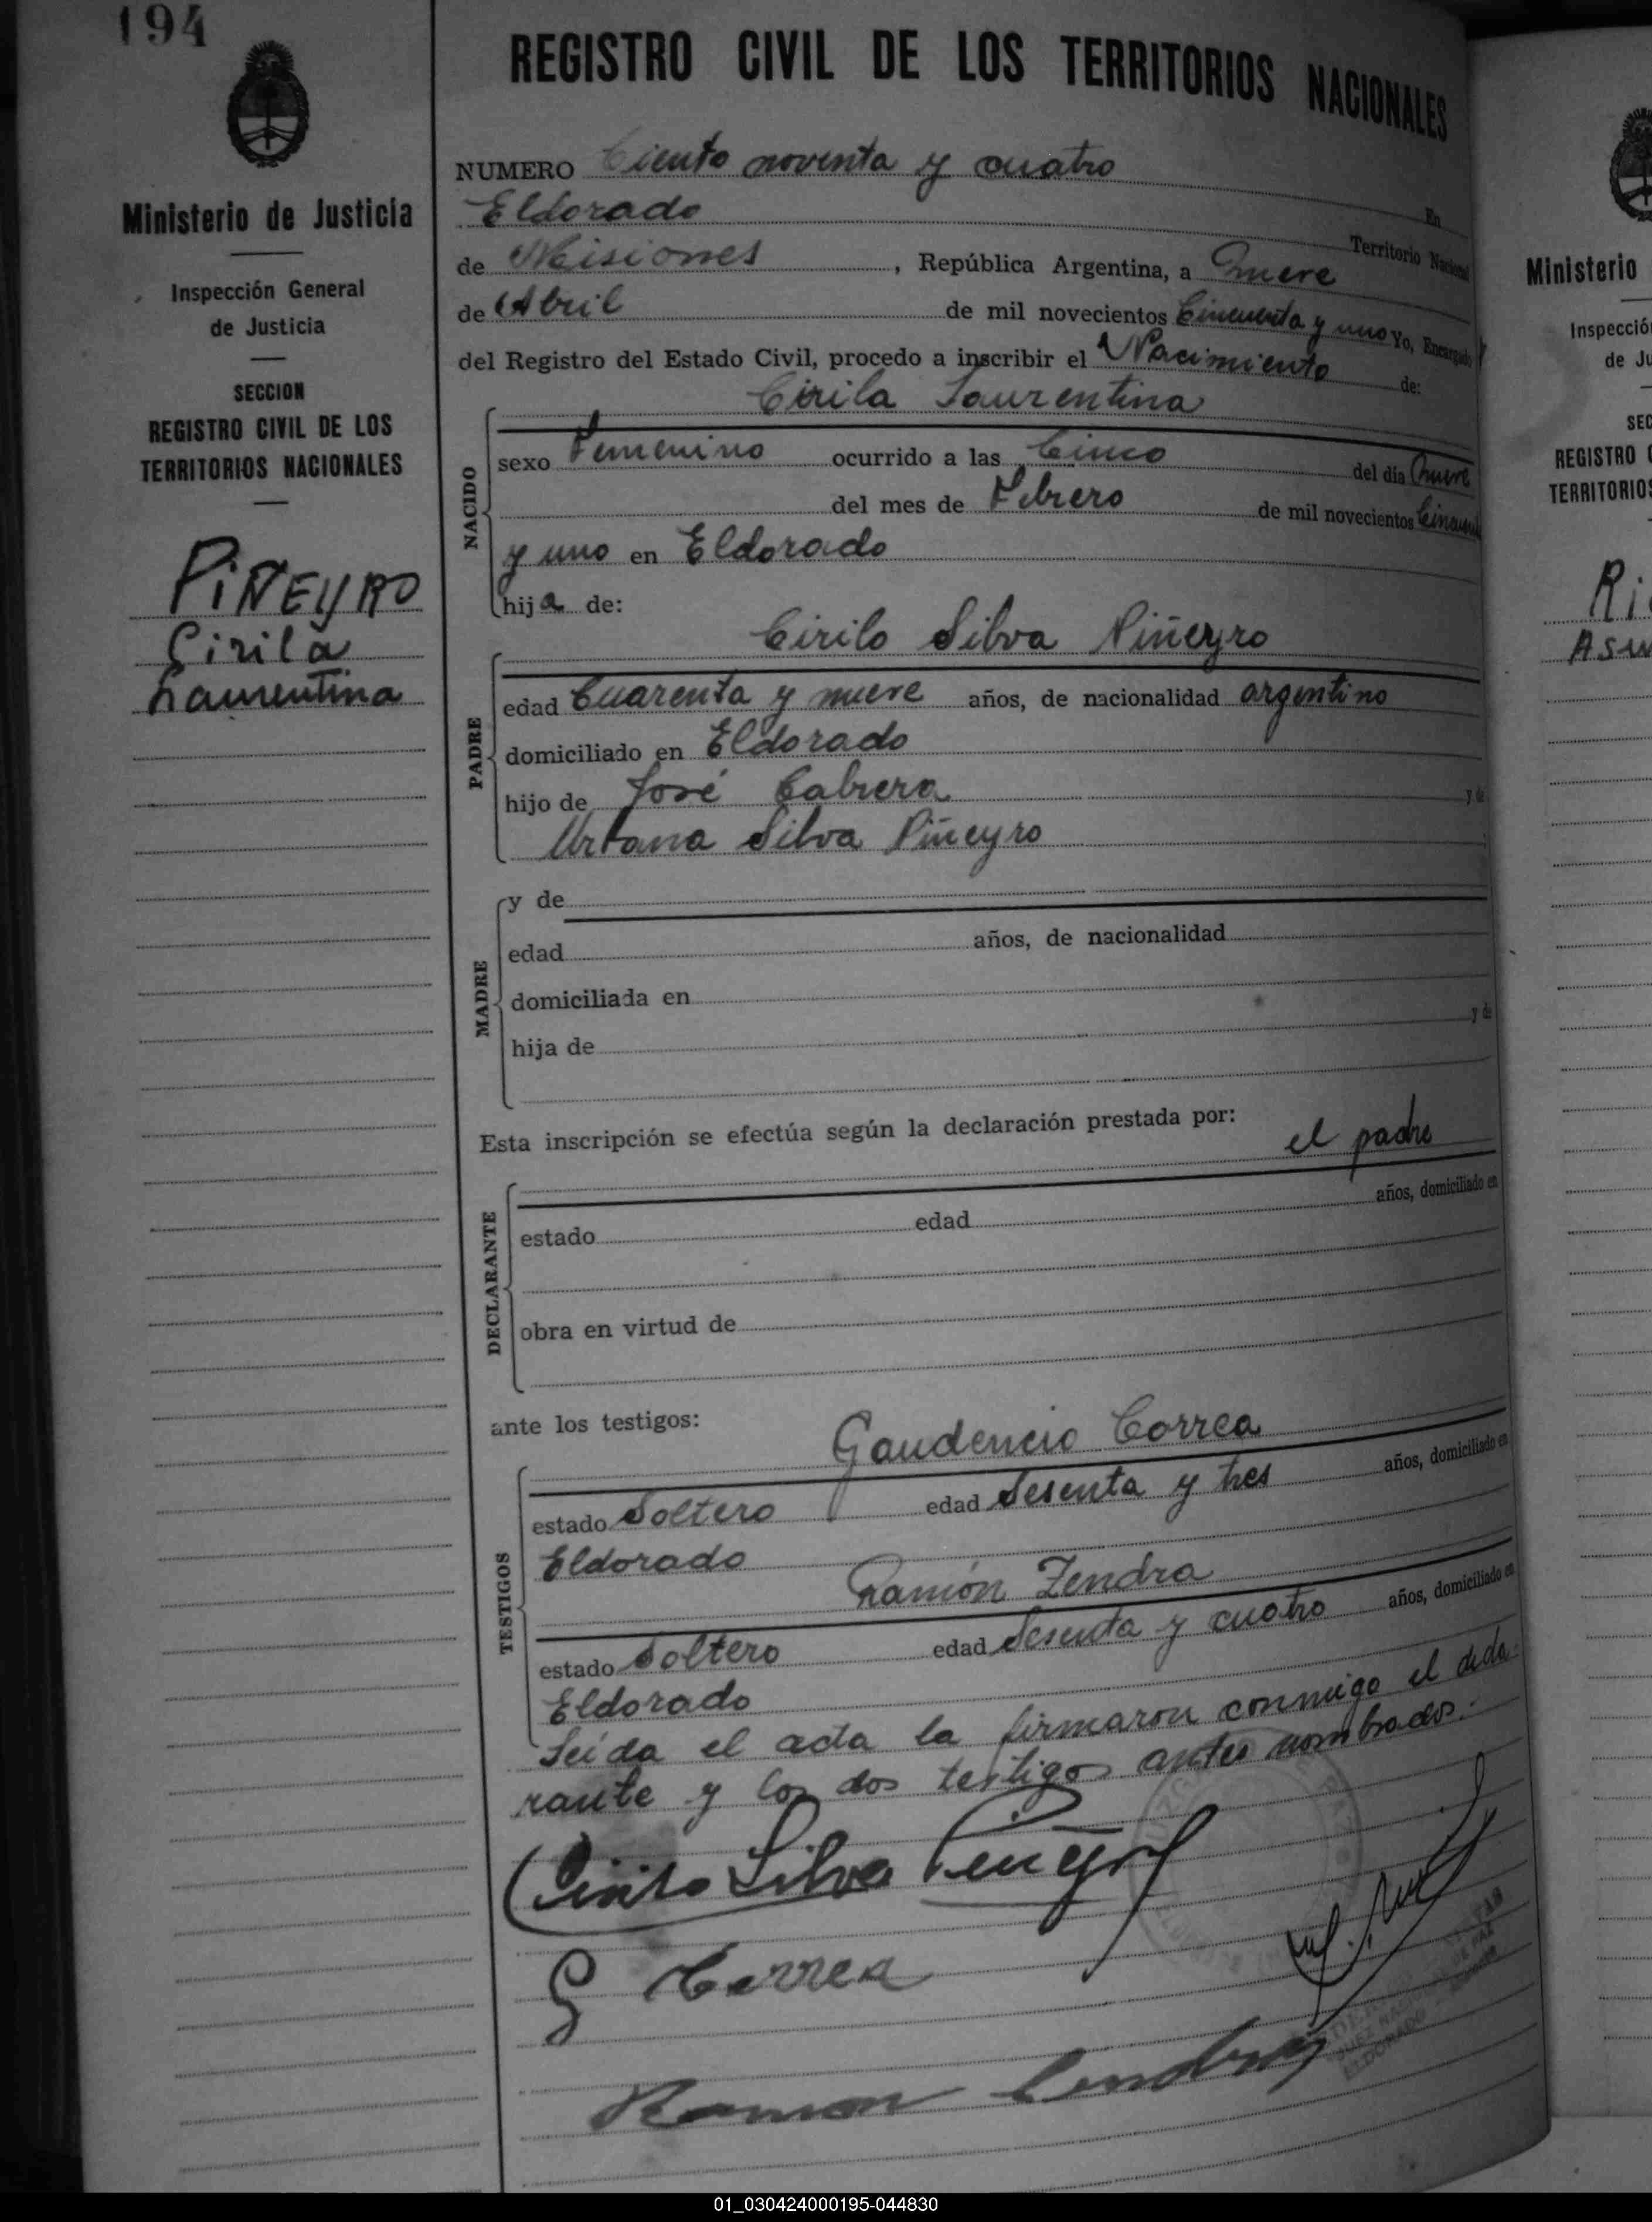 194
Ministerio de Justicia
Inspección General
de Justicia
SECCION
REGISTRO CIVIL DE LOS
TERRITORIOS NACIONALES
PIÑEYRO
Cirila
Laurentina
REGISTRO CIVIL DE LOS TERRITORIOS NACIONALES
NUMERO Ciento noventa y cuatro En
Eldorado Territorio Nacional
de Misiones, República Argentina, a nueve
de Abril de mil novecientos Cincuenta y uno Yo, Encargado
del Registro del Estado Civil, procedo a inscribir el Nacimiento de:
Cirila Laurentina
NACIDO
sexo Femenino ocurrido a las Cinco del día nueve
del mes de Febrero de mil novecientos Cincuenta
y uno en Eldorado
hija de:
Cirilo Silva Piñeyro
PADRE
edad Cuarenta y nueve años, de nacionalidad argentino
domiciliado en Eldorado
hijo de José Cabrera y de
Urbana Silva Piñeyro
MADRE
y de
edad años, de nacionalidad
domiciliada en
hija de y de
Esta inscripción se efectúa según la declaración prestada por:
el padre
DECLARANTE
estado edad años, domiciliado en
obra en virtud de
ante los testigos:
Gaudencio Correa
TESTIGOS
estado Soltero edad Sesenta y tres años, domiciliado en
Eldorado
Ramón Zendra
estado Soltero edad Sesenta y cuatro años, domiciliado en
Eldorado
Leída el acta la firmaron conmigo el decla-
rante y los dos testigos antes nombrados.
Cirilo Silva Piñeyro
G Correa
Ramon
JUEZ NACIONAL DE PAZ
ELDORADO
Ministerio
Inspecció
de Ju
SEC
REGISTRO C
TERRITORIOS
Ri
Asu
01_030424000195-044830